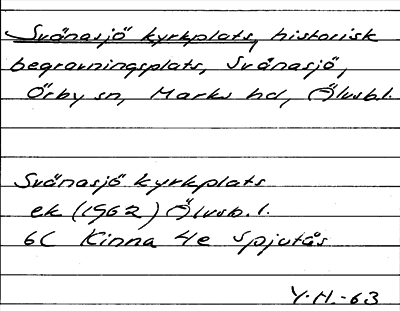 Svånasjö kyrkplats, historisk
begravningsplats, Svånasjö,
Örby sn, Marks hd, Älvsb.l.
Svånasjö kyrkplats
ek (1962) Älvsb. l.
6C Kinna 4e Spjutås
Y.H.-63